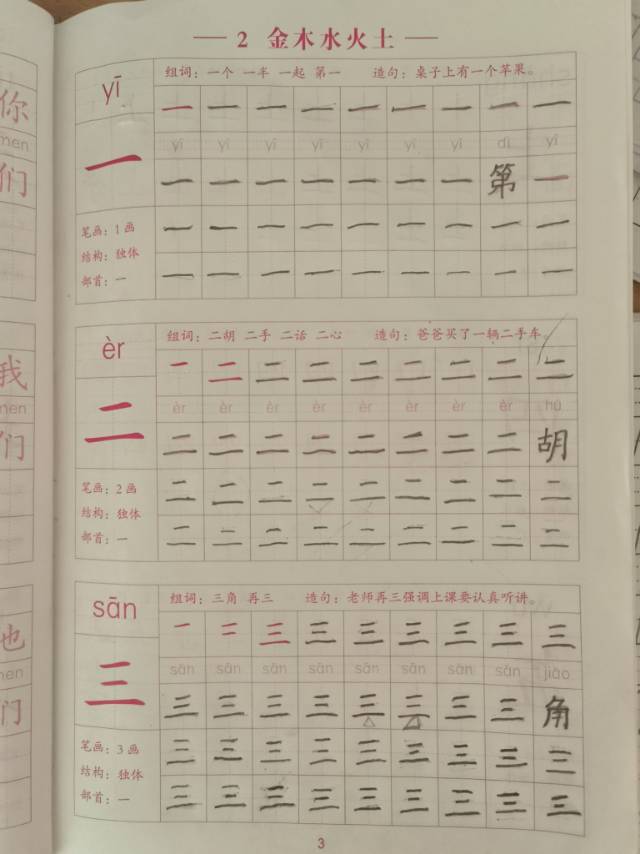 2 金木水火土
yī
组词：一个 一半 一起 第一 造句：桌子上有一个苹果。
一 一 一 一 一 一 一 一 一
yī yī yī yī yī yī yī dì yī
一
一 一 一 一 一 一 一 第 一
笔画：1画
一 一 一 一 一 一 一 一 一
结构：独体
部首：一
一 一 一 一 一 一 一 一 一
èr
组词：二胡 二手 二话 二心 造句：爸爸买了一辆二手车。
一 二 二 二 二 二 二 二 二
èr èr èr èr èr èr èr èr hú
二
二 二 二 二 二 二 二 二 胡
笔画：2画
二 二 二 二 二 二 二 二 二
结构：独体
部首：一
二 二 二 二 二 二 二 二 二
sān
组词：三角 再三 造句：老师再三强调上课要认真听讲。
一 二 三 三 三 三 三 三 三
sān sān sān sān sān sān sān sān jiǎo
三
三 三 三 三 三 三 三 三 角
笔画：3画
三 三 三 三 三 三 三 三 三
结构：独体
部首：一
三 三 三 三 三 三 三 三 三
3
你
men
们
我
men
们
也
men
们